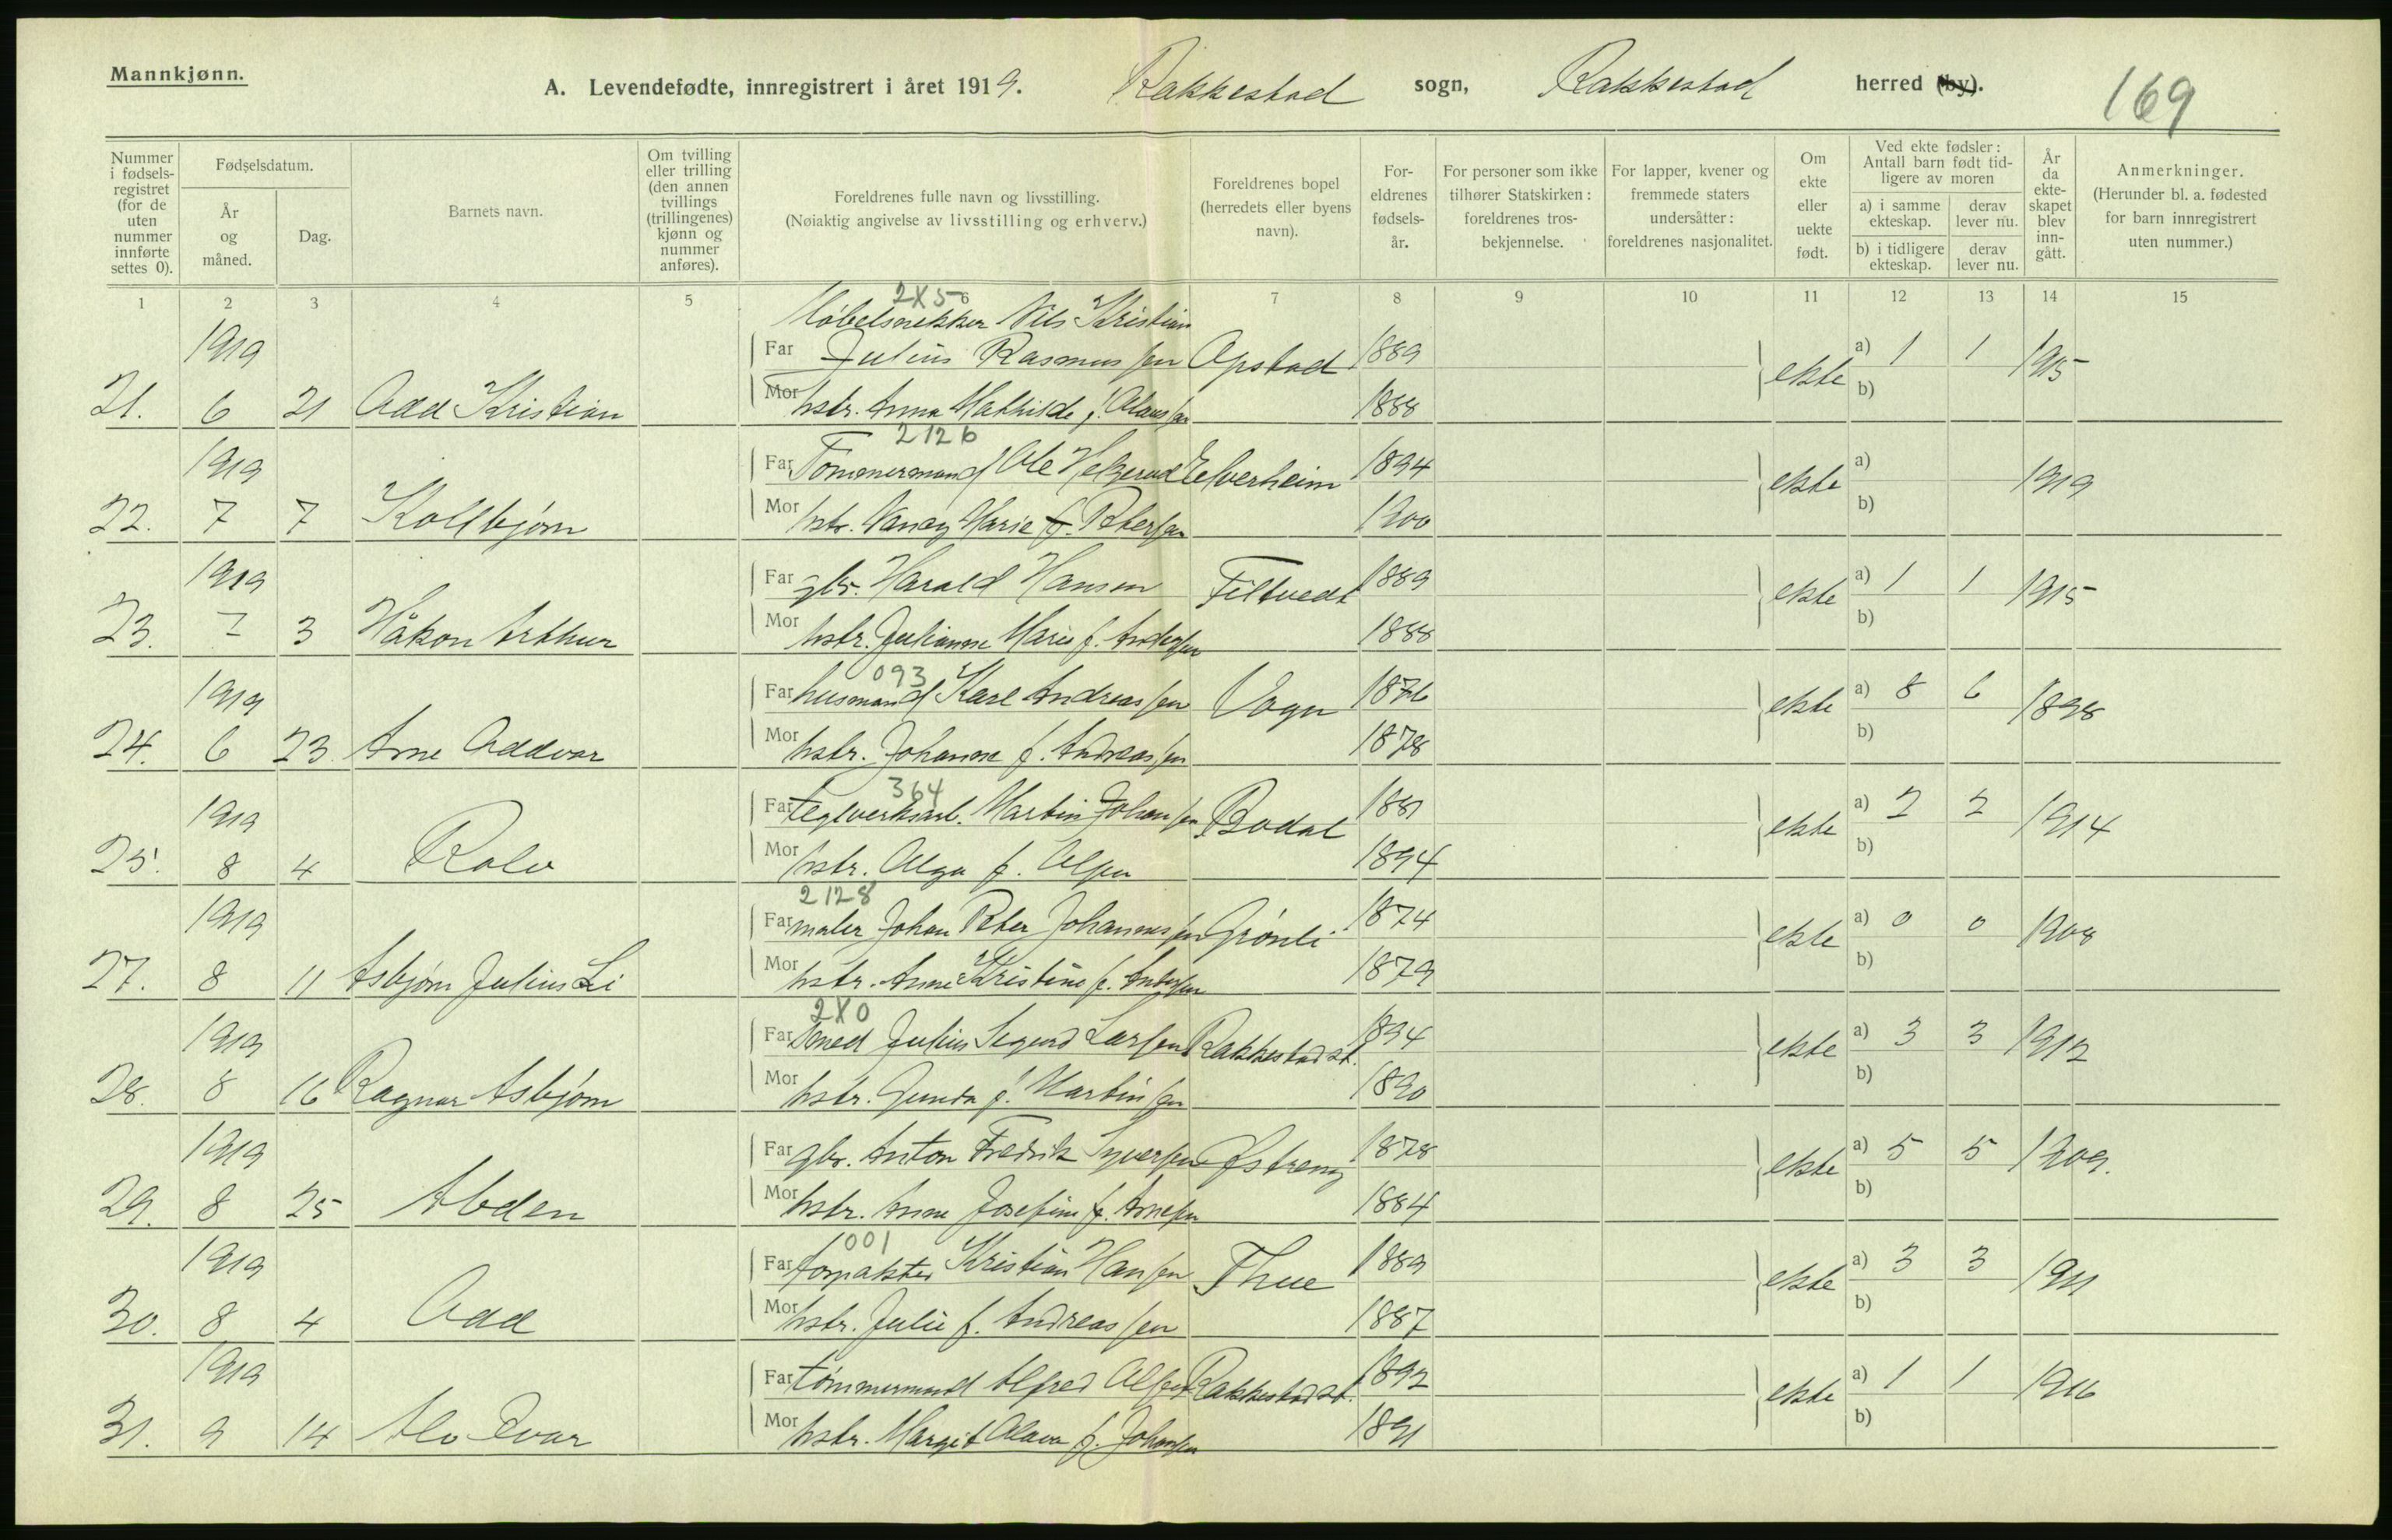 Mannkjønn.
A. Levendefødte, innregistrert i året 1919. Rakkestad sogn, Rakkestad herred (by).
169
Nummer i fødsels-registret (for de uten nummer innførte settes 0).
Fødselsdatum.
År og måned.
Dag.
Barnets navn.
Om tvilling eller trilling (den annen tvillings (trillingenes) kjønn og nummer anføres).
Foreldrenes fulle navn og livsstilling.
(Nøiaktig angivelse av livsstilling og erhverv.)
Foreldrenes bopel (herredets eller byens navn).
For-eldrenes fødsels-år.
For personer som ikke tilhører Statskirken: foreldrenes tros-bekjennelse.
For lapper, kvener og fremmede staters undersåtter: foreldrenes nasjonalitet.
Om ekte eller uekte født.
Ved ekte fødsler: Antall barn født tid-ligere av moren
a) i samme ekteskap.
derav lever nu.
b) i tidligere ekteskap.
derav lever nu.
År da ekte-skapet blev inn-gått.
Anmerkninger.
(Herunder bl. a. fødested for barn innregistrert uten nummer.)
1 2 3 4 5 6 7 8 9 10 11 12 13 14 15
2X5
Møbelsnekker Nils Kristian
1919 Far Julius Rasmussen Opstad 1889 ekte a) 1 1 1915
21. 6 21 Odd Kristian Mor hstr. Anna Mathilde f. Olaussen 1888 b)
2126
1919 Far Tømmermand Ole Helgerud Elverheim 1894 ekte a) 1919
22. 7 7 Kollbjørn Mor hstr. Nancy Marie f. Petersen 1900 b)
1919 Far gbr. Harald Hansen Filtvedt 1889 ekte a) 1 1 1915
23. 7 3 Håkon Arthur Mor hstr. Julianne Marie f. Andersen 1888 b)
093
1919 Far husmand Karl Andreassen Vogn 1876 ekte a) 8 6 1898
24. 6 23 Arne Oddvar Mor hstr. Johanne f. Andreassen 1878 b)
364
1919 Far teglverksarb. Martin Johansen Bodal 1881 ekte a) 2 2 1914
25. 8 4 Rolv Mor hstr. Olga f. Olsen 1894 b)
2128
1919 Far maler Johan Peter Johannessen Grønli 1874 ekte a) 0 0 1908
27. 8 11 Asbjørn Julius Li Mor hstr. Anne Kristine f. Andersen 1879 b)
2X0
1919 Far Smed Julius Sigurd Larsen Rakkestad st. 1894 ekte a) 3 3 1912
28. 8 16 Ragnar Asbjørn Mor hstr. Gunda f. Martinsen 1890 b)
1919 Far gbr. Anton Fredrik Syversen Østreng 1878 ekte a) 5 5 1909.
29. 8 25 Mor hstr. Anne Josefine f. Arnesen 1884 b)
001
1919 Far forpakter Kristian Hansen Thue 1889 ekte a) 3 3 1911
30. 8 4 Odd Mor hstr. Julie f. Andreassen 1887 b)
1919 Far tømmermand Alfred Olsen Rakkestad st. 1892 ekte a) 1 1 1916
31. 9 14 Alv Ivar Mor hstr. Margit Olava f. Johansen 1891 b)